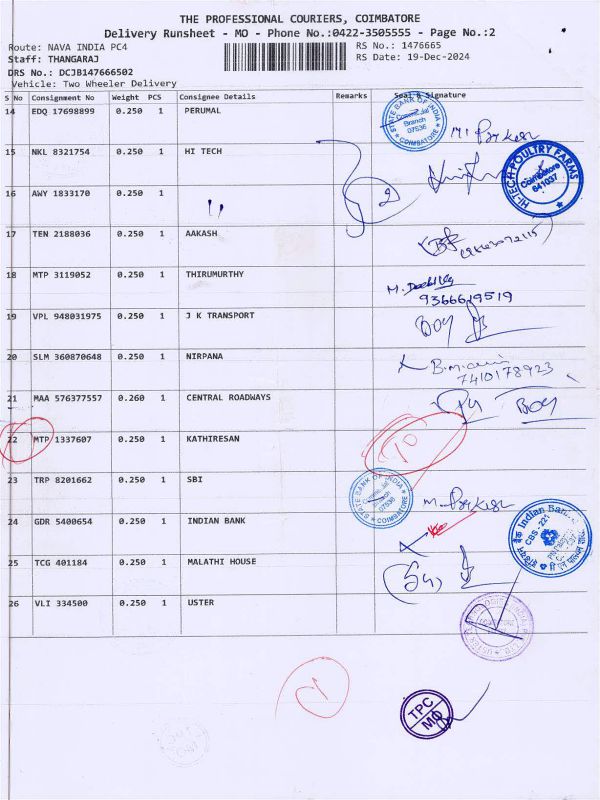 THE PROFESSIONAL COURIERS, COIMBATORE
Delivery Runsheet - MO - Phone No.:0422-3505555 - Page No.:2
Route: NAVA INDIA PC4
RS No.: 1476665
Staff: THANGARAJ
RS Date: 19-Dec-2024
DRS No.: DCJB147666502
Vehicle: Two Wheeler Delivery
S No Consignment No Weight PCS Consignee Details Remarks Seal & Signature
14 EDQ 17698899 0.250 1 PERUMAL
STATE BANK OF INDIA Commercial Branch 07536 COIMBATORE
15 NKL 8321754 0.250 1 HI TECH
HI-TECH POULTRY FARMS Coimbatore 641037
16 AWY 1833170 0.250 1 "
2
17 TEN 2188036 0.250 1 AAKASH
18 MTP 3119052 0.250 1 THIRUMURTHY
9366619519
19 VPL 948031975 0.250 1 J K TRANSPORT
BOY
20 SLM 360870648 0.250 1 NIRPANA
7410178923
21 MAA 576377557 0.260 1 CENTRAL ROADWAYS
BOY
22 MTP 1337607 0.250 1 KATHIRESAN
23 TRP 8201662 0.250 1 SBI
STATE BANK OF INDIA Commercial Branch 07536 COIMBATORE
24 GDR 5400654 0.250 1 INDIAN BANK
Indian Bank
25 TCG 401184 0.250 1 MALATHI HOUSE
26 VLI 334500 0.250 1 USTER
TPC
MO